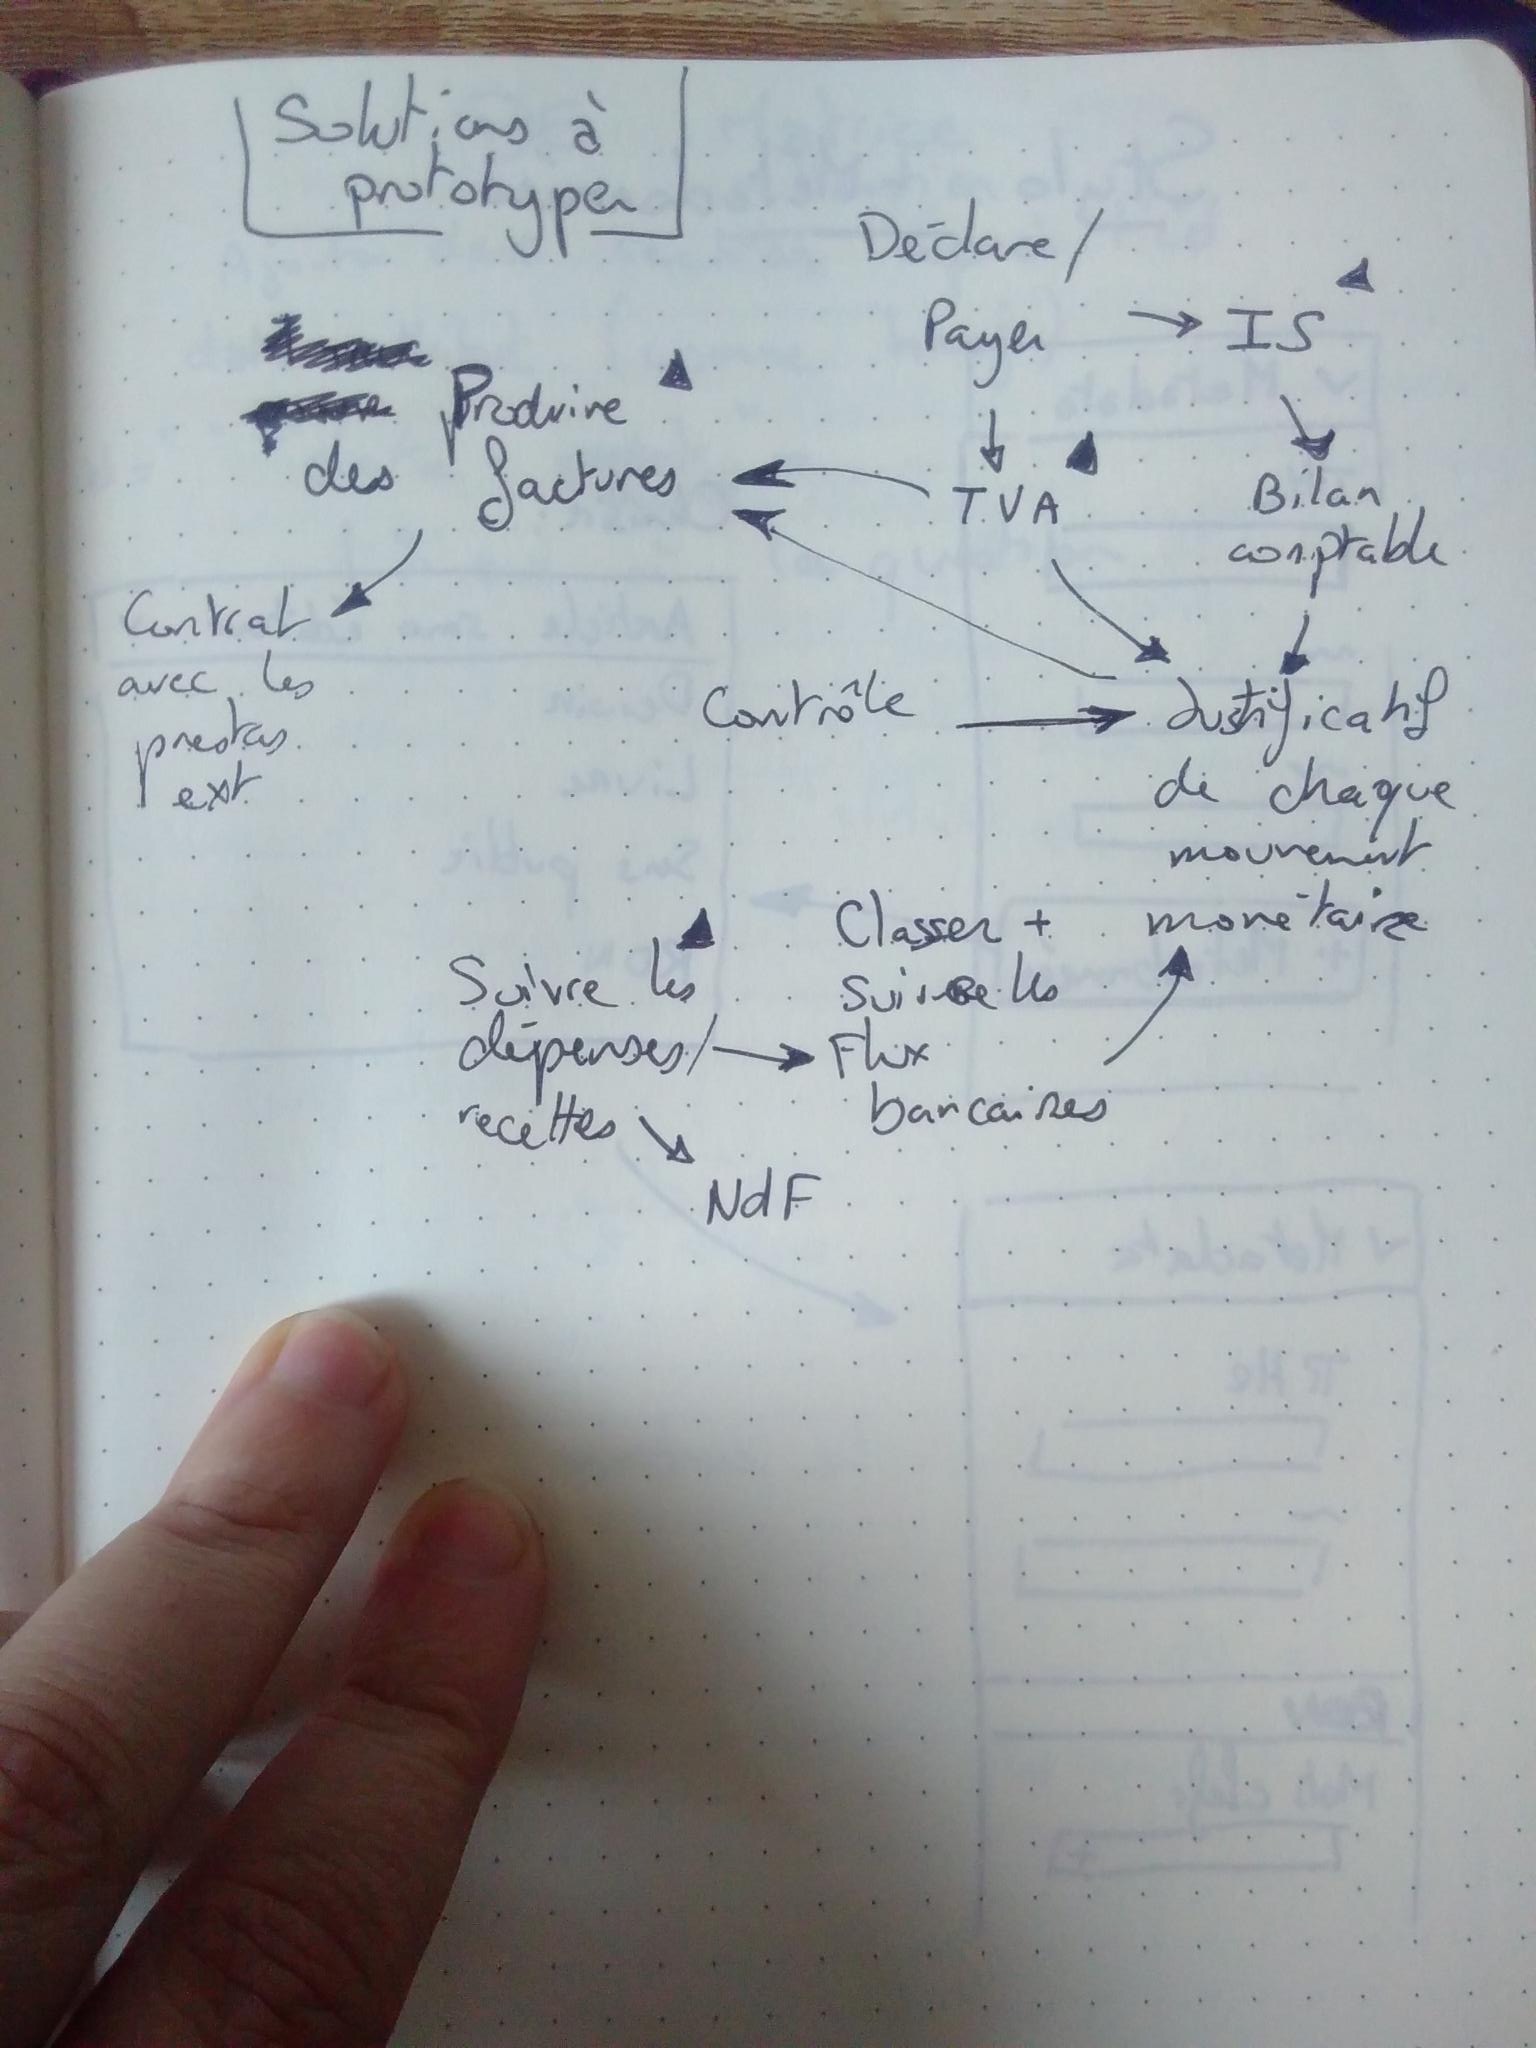 Solutions à
prototyper
Déclarer/
Payer → IS
Produire
des factures
TVA
Bilan
comptable
Contrat
avec les
prestas
ext
Contrôle
Justificatif
de chaque
mouvement
monétaire
Classer +
suivre les
Flux
bancaires
Suivre les
dépenses/
recettes
NdF